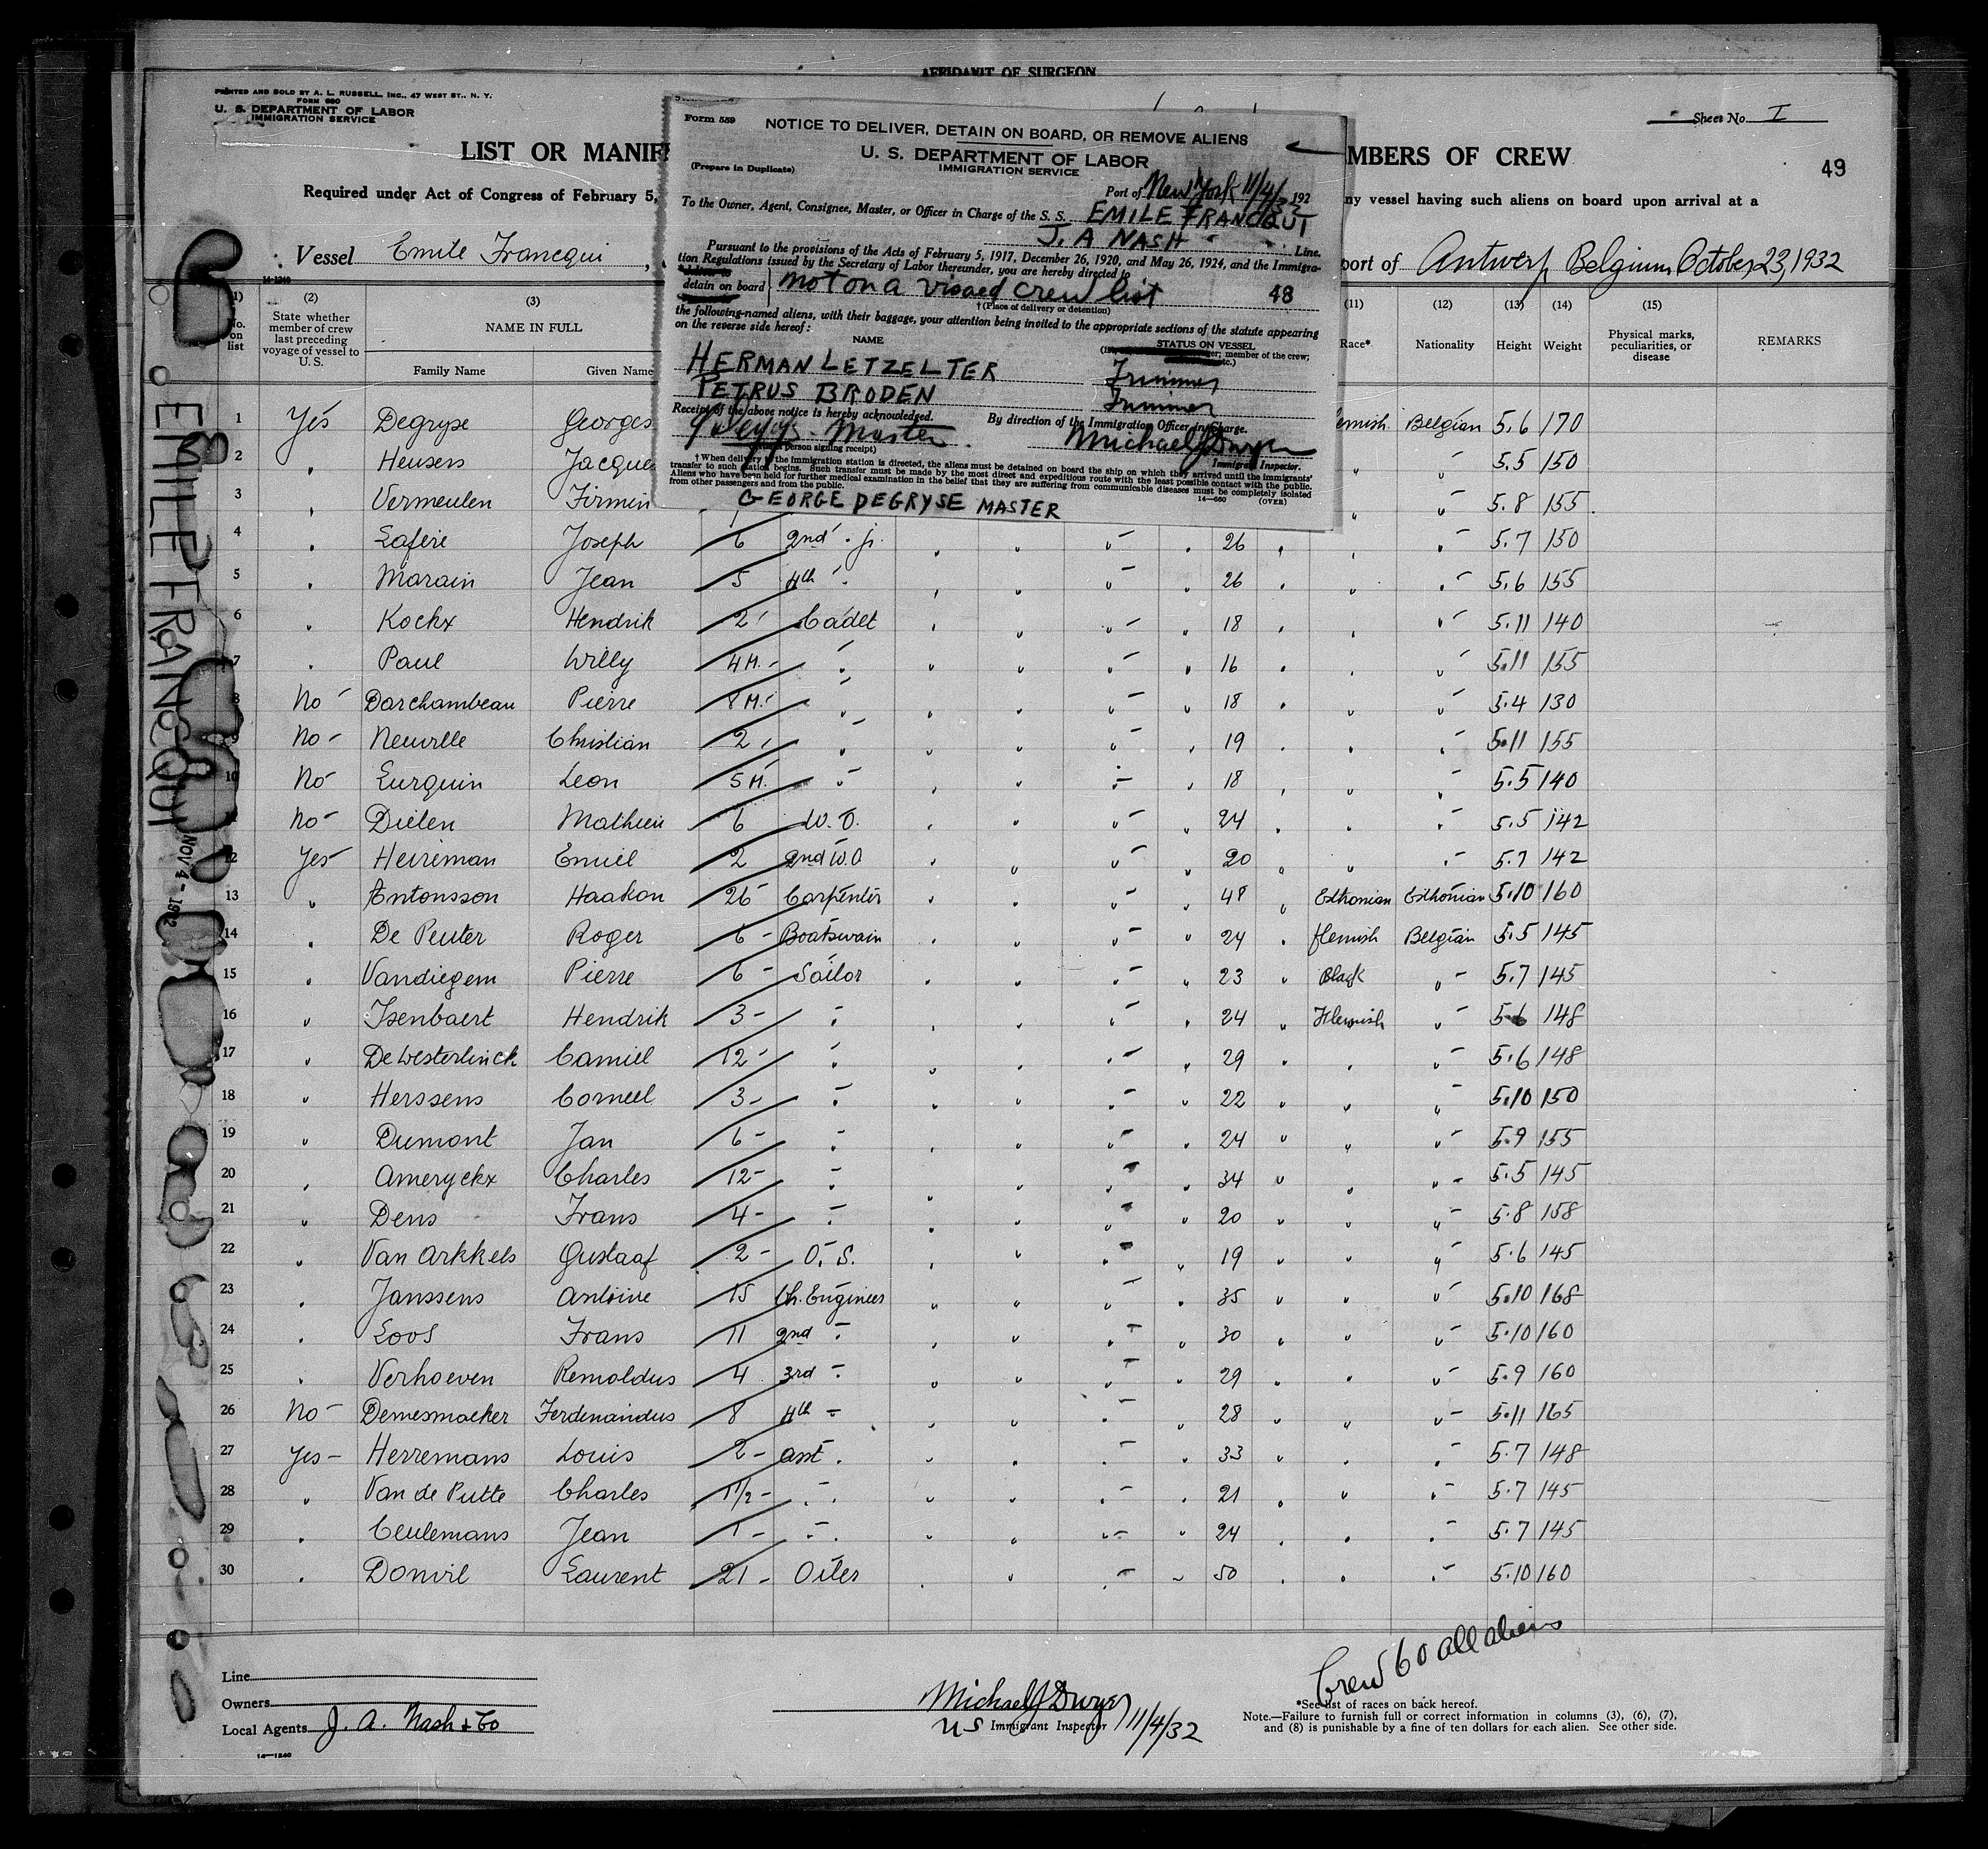 AFFIDAVIT OF SURGEON
PRINTED AND SOLD BY A. L. RUSSELL, INC., 47 WEST ST., N. Y.
FORM 680
U. S. DEPARTMENT OF LABOR
IMMIGRATION SERVICE
Sheet No. I
49
LIST OR MANIF
MBERS OF CREW
Required under Act of Congress of February 5,
ny vessel having such aliens on board upon arrival at a
Vessel Emile Francqui ,
port of Antwerp, Belgium, October 23, 1932
Form 559
NOTICE TO DELIVER, DETAIN ON BOARD, OR REMOVE ALIENS
U. S. DEPARTMENT OF LABOR
(Prepare in Duplicate)
IMMIGRATION SERVICE
Port of New York 11/4/32, 192
To the Owner, Agent, Consignee, Master, or Officer in Charge of the S. S. EMILE FRANCQUI
J. A NASH Line.
Pursuant to the provisions of the Acts of February 5, 1917, December 26, 1920, and May 26, 1924, and the Immigra-
tion Regulations issued by the Secretary of Labor thereunder, you are hereby directed to
detain on board not on a visaed crew list 48
† (Place of delivery or detention)
the following-named aliens, with their baggage, your attention being invited to the appropriate sections of the statute appearing
on the reverse side hereof:
NAME
STATUS ON VESSEL
member of the crew;
etc.)
HERMAN LETZELTER Trimmer
PETRUS BRODEN Trimmer
Receipt of the above notice is hereby acknowledged.
By direction of the Immigration Officer in Charge.
Master Michael J Dwyer
person signing receipt)
Immigrant Inspector.
† When delivery to the immigration station is directed, the aliens must be detained on board the ship on which they arrived until the immigrants'
transfer to such station begins. Such transfer must be made by the most direct and expeditious route with the least possible contact with the public.
Aliens who have been held for further medical examination in the belief that they are suffering from communicable diseases must be completely isolated
from other passengers and from the public.
14—660 (OVER)
GEORGE DEGRYSE MASTER
14-1240
(1) (2) (3) (11) (12) (13) (14) (15)
No. on list
State whether member of crew last preceding voyage of vessel to U. S.
NAME IN FULL
Family Name Given Name
Race* Nationality Height Weight
Physical marks, peculiarities, or disease
REMARKS
1 Yes Degryse Georges emish Belgian 5.6 170
2 " Heusers Jacque " " 5.5 150
3 " Vermeulen Firmin " " 5.8 155
4 " Lafere Joseph 6 2nd " jr. " " " " 26 " " " 5.7 150
5 " Marain Jean 5 4th " " " " " 26 " " " 5.6 155
6 " Kockx Hendrik 2 Cadet " " " " 18 " " " 5.11 140
7 " Paul Willy 4 M. " " " " " 16 " " " 5.11 155
8 No Darchambeau Pierre 8 M. " " " " " 18 " " " 5.4 130
9 No Neuville Christian 2 " " " " " 19 " " " 5.11 155
10 No Eurquin Leon 5 M. " " " " " 18 " " " 5.5 140
11 No Dielen Mathieu 6 W.O. " " " " 24 " " " 5.5 142
12 Yes Heireman Emiel 2 2nd W.O " " " " 20 " " " 5.7 142
13 " Antonsson Haakon 26 Carpenter " " " " 48 " Esthonian Esthonian 5.10 160
14 " De Peuter Roger 6 Boatswain " " " " 24 " flemish Belgian 5.5 145
15 " Vandiegem Pierre 6 Sailor " " " " 23 " Black " 5.7 145
16 " Isenbaert Hendrik 3 " " " " " 24 " Flemish " 5.6 148
17 " De Westerlinck Camiel 12 " " " " " 29 " " " 5.6 148
18 " Herssens Corneel 3 " " " " " 22 " " " 5.10 150
19 " Dumont Jan 6 " " " " " 24 " " " 5.9 155
20 " Ameryckx Charles 12 " " " " " 34 " " " 5.5 145
21 " Dens Frans 4 " " " " " 20 " " " 5.8 158
22 " Van Arkkels Gustaaf 2 O. S. " " " " 19 " " " 5.6 145
23 " Janssens Antoine 15 Ch. Engineer " " " " 35 " " " 5.10 168
24 " Loos Frans 11 2nd " " " " " 30 " " " 5.10 160
25 " Verhoeven Remoldus 4 3rd " " " " " 29 " " " 5.9 160
26 No Demesmaeker Ferdinandus 8 4th " " " " " 28 " " " 5.11 165
27 Yes Herremans Louis 2 asst. " " " " 33 " " " 5.7 148
28 " Van de Putte Charles 1 1/2 " " " " " 21 " " " 5.7 145
29 " Ceulemans Jean 1 " " " " " 24 " " " 5.7 145
30 " Donvil Laurent 21 Oiler " " " " 50 " " " 5.10 160
EMILE FRANCQUI
NOV 4 - 1932
Crew 60 all aliens
Line
Owners
Local Agents J. A. Nash & Co
14—1240
Michael J Dwyer
US Immigrant Inspector 11/4/32
*See list of races on back hereof.
Note.—Failure to furnish full or correct information in columns (3), (6), (7),
and (8) is punishable by a fine of ten dollars for each alien. See other side.